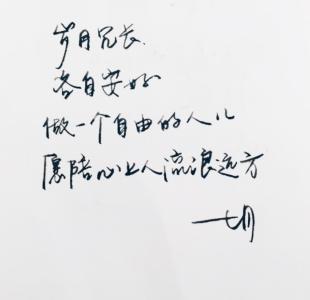 岁月冗长
各自安好
做一个自由的人儿
愿陪心上人流浪远方
一七月